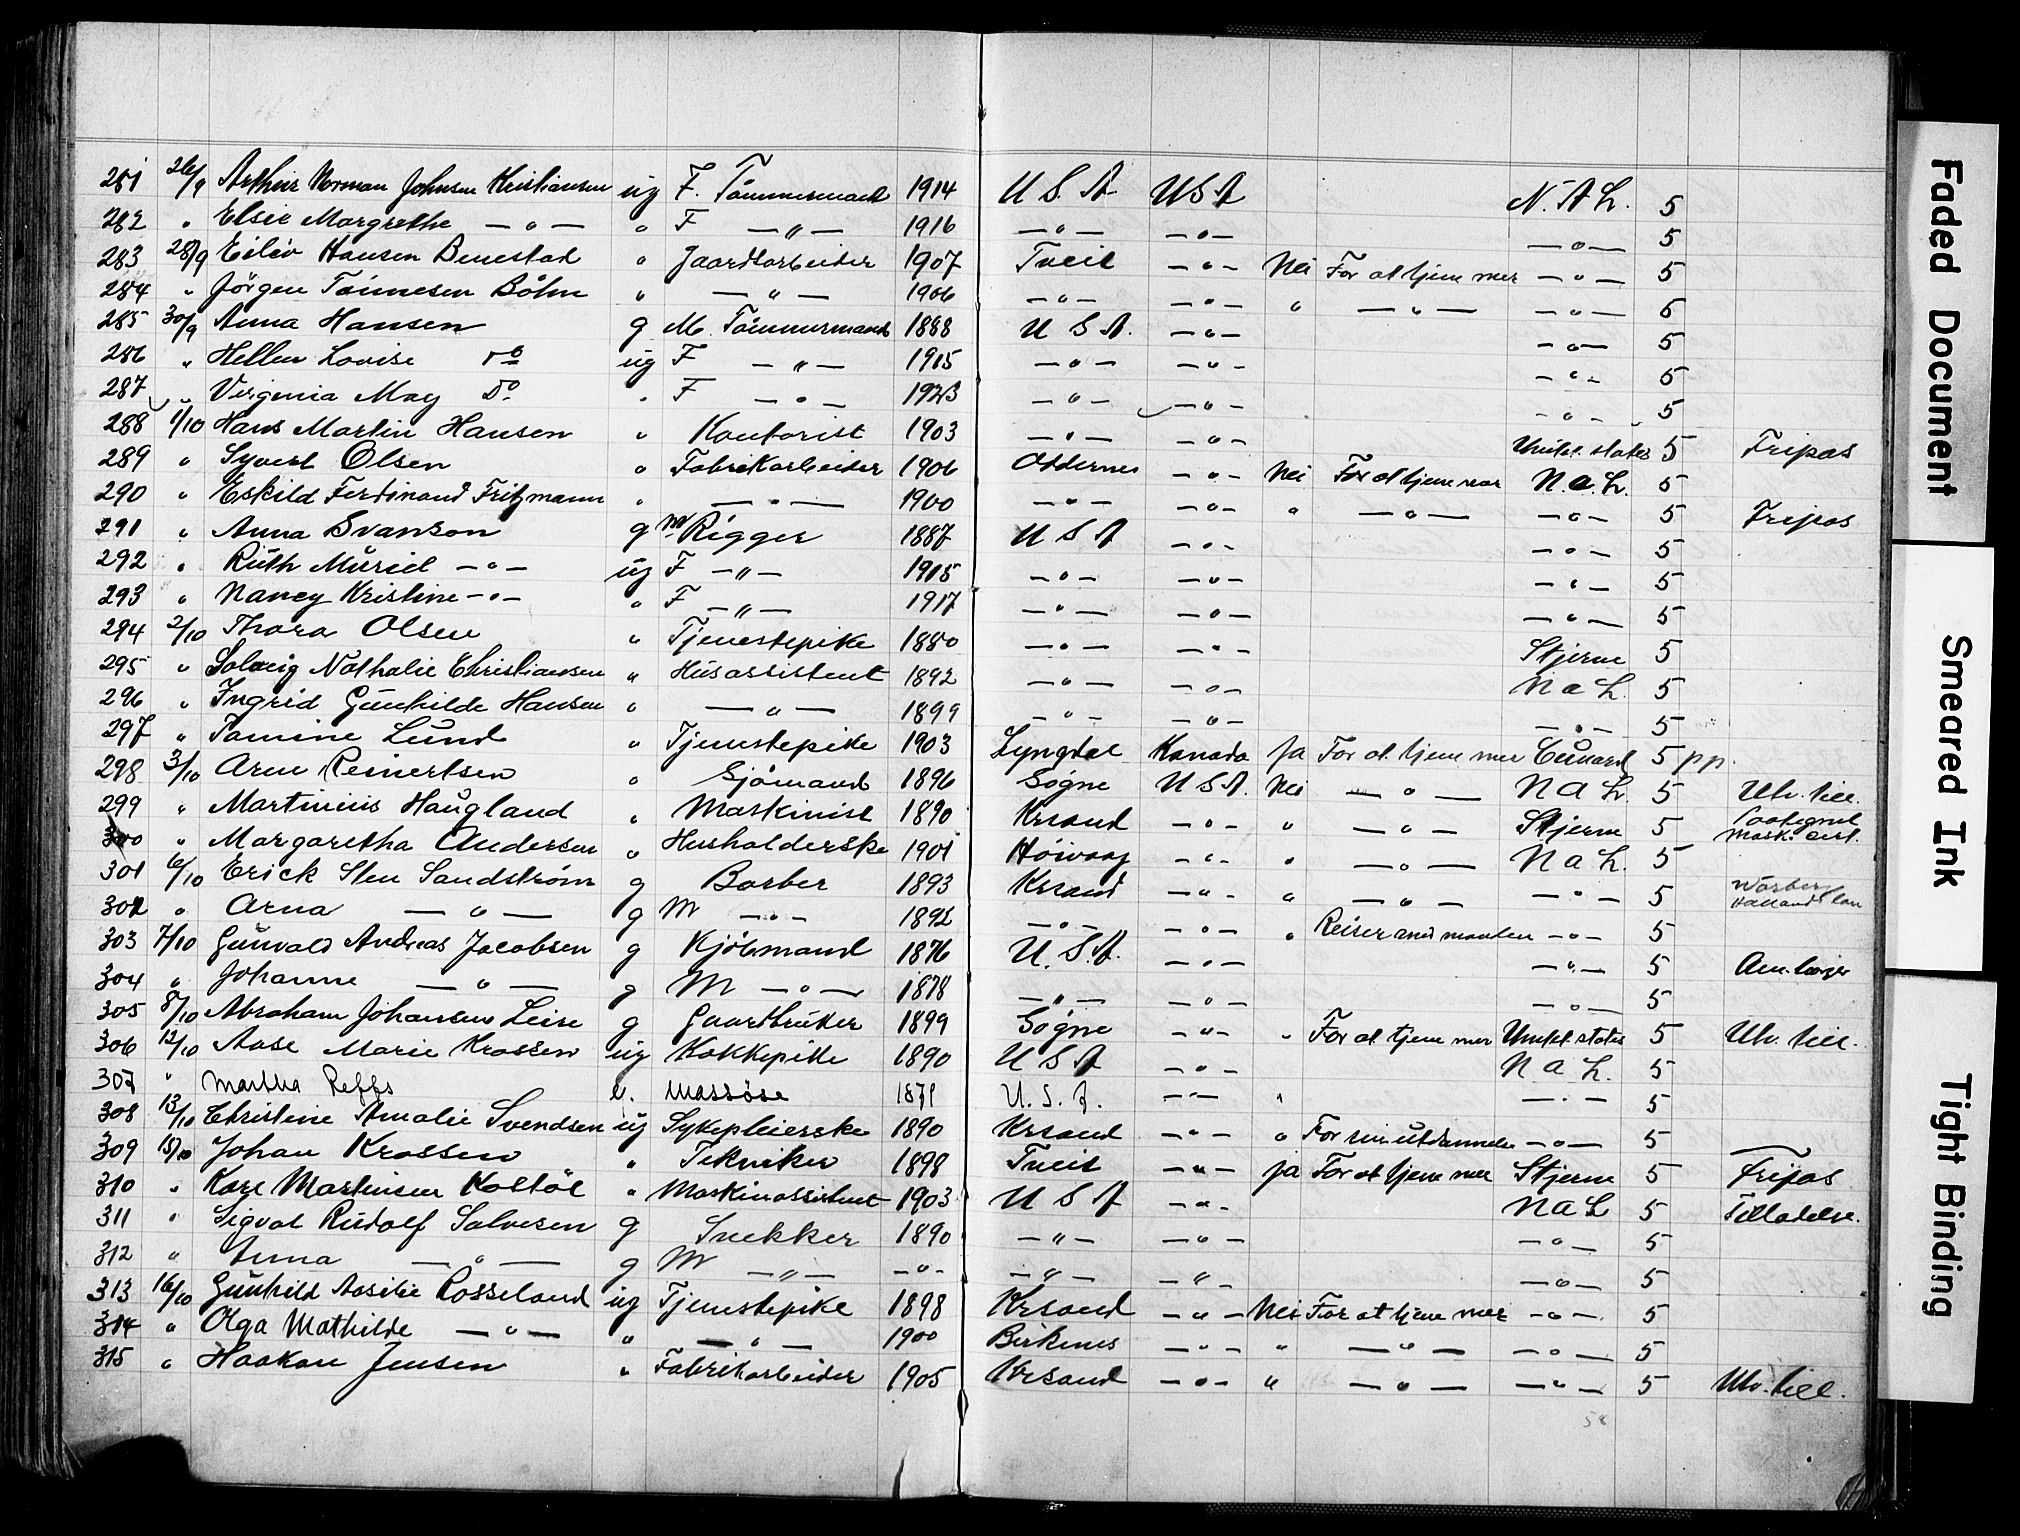 281 26/9 Arthur Norman Johnsen Kristiansen ug F. Tømmermand 1914 U S. A U S A N. A L. 5
282 " Elsie Margrethe —"— " F —"— 1916 —"— —"— —"— 5
283 28/9 Eiliv Hansen Benestad " Gaardsarbeider 1907 Tveit —"— Nei For at tjene mer —"— 5
284 " Jörgen Tönnesen Böhn " —"— 1906 —"— —"— " —"— —"— 5
285 30/9 Anna Hansen g M. Tömmermand 1888 U S A. —"— —"— 5
286 " Hellen Lovise do ug F —"— 1915 —"— —"— —"— 5
287 " Virginia May do " F —"— 1923 —"— —"— —"— 5
288 1/10 Hans Martin Hansen " Kontorist 1903 —"— —"— Unitet. states 5 Fripas
289 " Syvert Olsen " Fabrikarbeider 1906 Oddernes —"— Nei For at tjene mer N. a. L. 5
290 " Eskild Ferdinand Fritzmann " —"— 1900 —"— —"— " —"— —"— 5 Fripas
291 " Anna Svanson g M. Rigger 1887 U S A —"— —"— 5
292 " Ruth Muriel —"— ug F —"— 1915 —"— —"— —"— 5
293 " Nancy Kristine —"— " F —"— 1917 —"— —"— —"— 5
294 2/10 Thora Olsen " Tjenestepike 1880 —"— —"— Stjerne 5
295 " Solveig Nathalie Christiansen " Husassistent 1892 —"— —"— N a L. 5
296 " Ingrid Gunhilde Hansen " —"— 1899 —"— —"— —"— 5
297 " Tomine Lund " Tjenestepike 1903 Lyngdal Kanada ja For at tjene mer Cunard 5 pp.
298 3/10 Arne Reinertsen " Sjömand 1896 Søgne U S A. Nei —"— N a L. 5 Utv. till.
299 " Martinius Haugland " Maskinist 1890 Krsand —"— " —"— Stjerne 5 Paategnet mask. cert.
300 " Margaretha Andersen " Husholderske 1901 Höivaag —"— " —"— N a L. 5
301 6/10 Erick Sten Sandström g Barber 1893 Krsand —"— " —"— —"— 5 Warberg Hallands län
302 " Arna —"— g M —"— 1892 —"— —"— " Reiser med manden —"— 5
303 7/10 Gunvald Andreas Jacobsen g Kjöbmand 1876 U. S. A. —"— —"— 5 Am. borger
304 " Johanne —"— g M —"— 1878 —"— —"— —"— 5
305 8/10 Abraham Johansen Leire g Gaardbruker 1899 Søgne —"— " For at tjene mer Unitet. states 5 Utv. till.
306 12/10 Aase Marie Krossen ug Kokkepike 1890 U S A —"— N a L. 5
307 " Martha Reffs e. Massöse 1871 U. S. A. —"— " —"— 5
308 13/10 Christine Amalie Svendsen ug Sykepleierske 1890 Krsand —"— " For sin utdannelse —"— 5
309 15/10 Johan Krossen " Tekniker 1898 Tveit —"— ja For at tjene mer Stjerne 5 Fripas
310 " Kare Martinsen Koltöl " Maskinassistent 1903 U S A —"— N a L 5 Tilladelse.
311 " Sigval Rudolf Salvesen g Snekker 1890 —"— —"— —"— 5
312 " Anna —"— g M —"— —"— —"— —"— —"— 5
313 16/10 Gunhild Aasilie Rosseland ug Tjenestepike 1898 Krsand —"— Nei For at tjene mer —"— 5
314 " Olga Mathilde —"— " —"— 1900 Birkenes —"— " —"— —"— 5
315 " Haakon Jensen " Fabrikarbeider 1905 Krsand —"— " —"— —"— 5 Utv. till.
58
Faded Document
Smeared Ink
Tight Binding